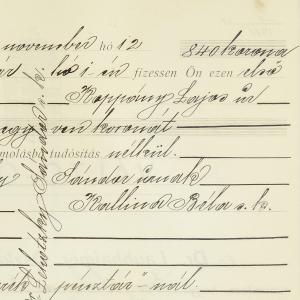 november hó 12 840 korona
hó 1-én fizessen Ön ezen első
Koppány Lajos úr
negyven koronát
molásba tudósítás nélkül.
Sándor úrnak
Kallina Béla s. k.
pénztár"-nál.